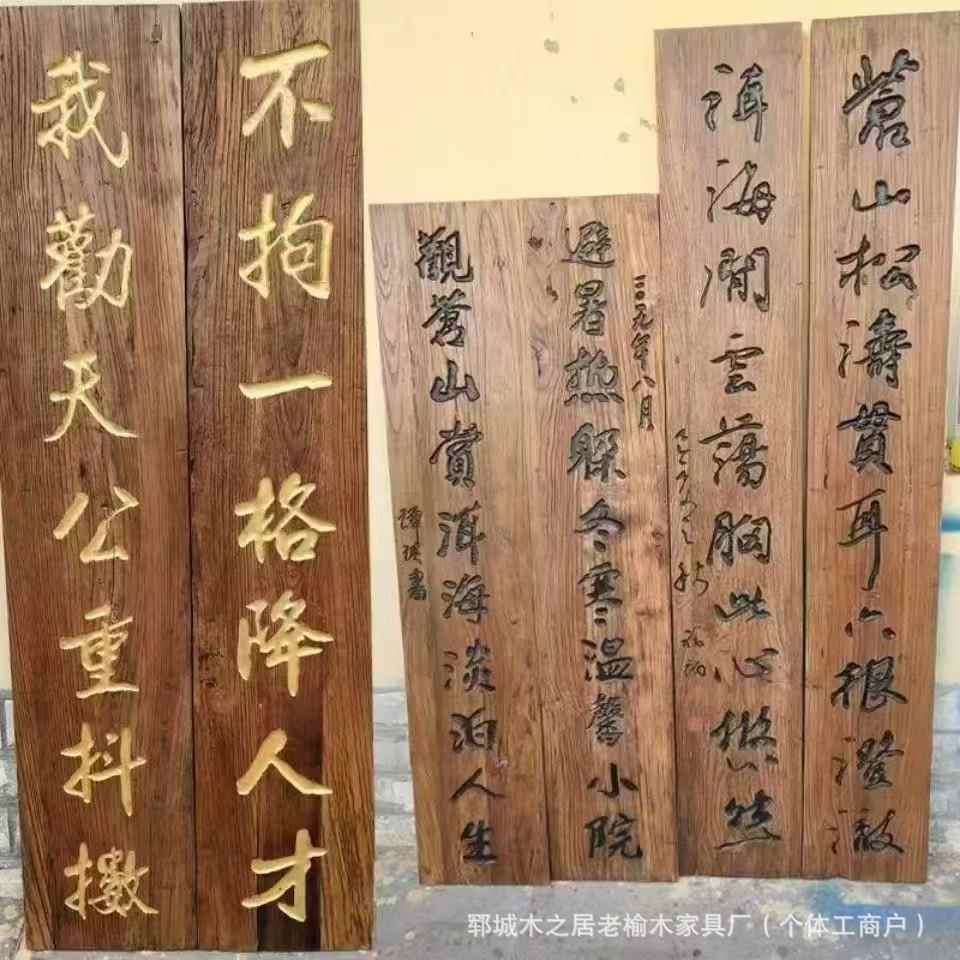 我勸天公重抖擻
不拘一格降人才
觀蒼山賞洱海淡泊人生
避暑热躲冬寒温馨小院
二〇一九年八月
洱海閒雲蕩胸此心悠然
蒼山松濤貫耳六根澄澈
郓城木之居老榆木家具厂（个体工商户）